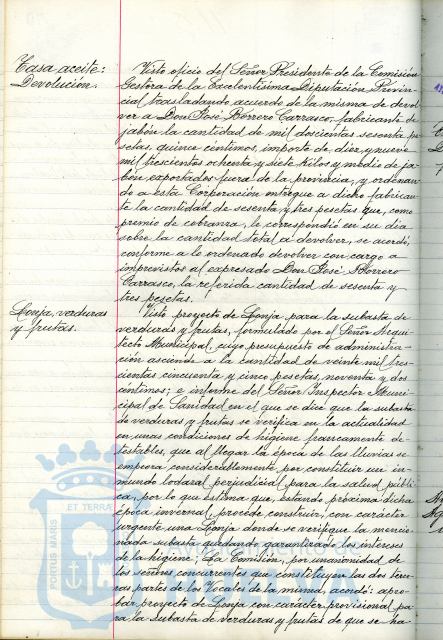 Tasa aceite:
Devolución.
Visto oficio del Señor Presidente de la Comisión
Gestora de la Excelentísima Diputación Provin-
cial trasladando acuerdo de la misma de devol-
ver a Don José Borrero Carrasco, fabricante de
jabón la cantidad de mil doscientas sesenta pe-
setas, quince céntimos, importe de diez y nueve
mil trescientos ochenta y siete kilos y medio de ja-
bón, exportados fuera de la provincia, y ordenan-
do a esta Corporación entregue a dicho fabrican-
te la cantidad de sesenta y tres pesetas que, como
premio de cobranza, le correspondió en su día
sobre la cantidad total a devolver, se acordó,
conforme a lo ordenado devolver con cargo a
imprevistos al expresado Don José Borrero
Carrasco, la referida cantidad de sesenta y
tres pesetas.
Lonja, verduras
y frutas.
Visto proyecto de Lonja, para la subasta de
verduras y frutas, formulado por el Señor Arqui-
tecto Municipal, cuyo presupuesto de administra-
ción asciende a la cantidad de veinte mil tres-
cientas cincuenta y cinco pesetas, noventa y dos
céntimos; e informe del Señor Inspector Muni-
cipal de Sanidad en el que se dice que la subasta
de verduras y frutas se verifica en la actualidad
en unas condiciones de higiene francamente de-
testables, que al llegar la época de las lluvias se
empeora considerablemente por constituir un in-
mundo lodazal perjudicial para la salud públi-
ca, por lo que estima que, estando próxima dicha
época invernal, procede construir, con carácter
urgente una Lonja donde se verifique la mencio-
nada subasta quedando garantizado los intereses
de la higiene; La Comisión, por unanimidad de
los señores concurrentes que constituyen las dos terce-
ras partes de los vocales de la misma, acordó: apro-
bar proyecto de Lonja con carácter provisional pa-
ra la subasta de verduras y frutas de que se ha
PORTUS MARIS ET TERRAE
Ayuntamiento de